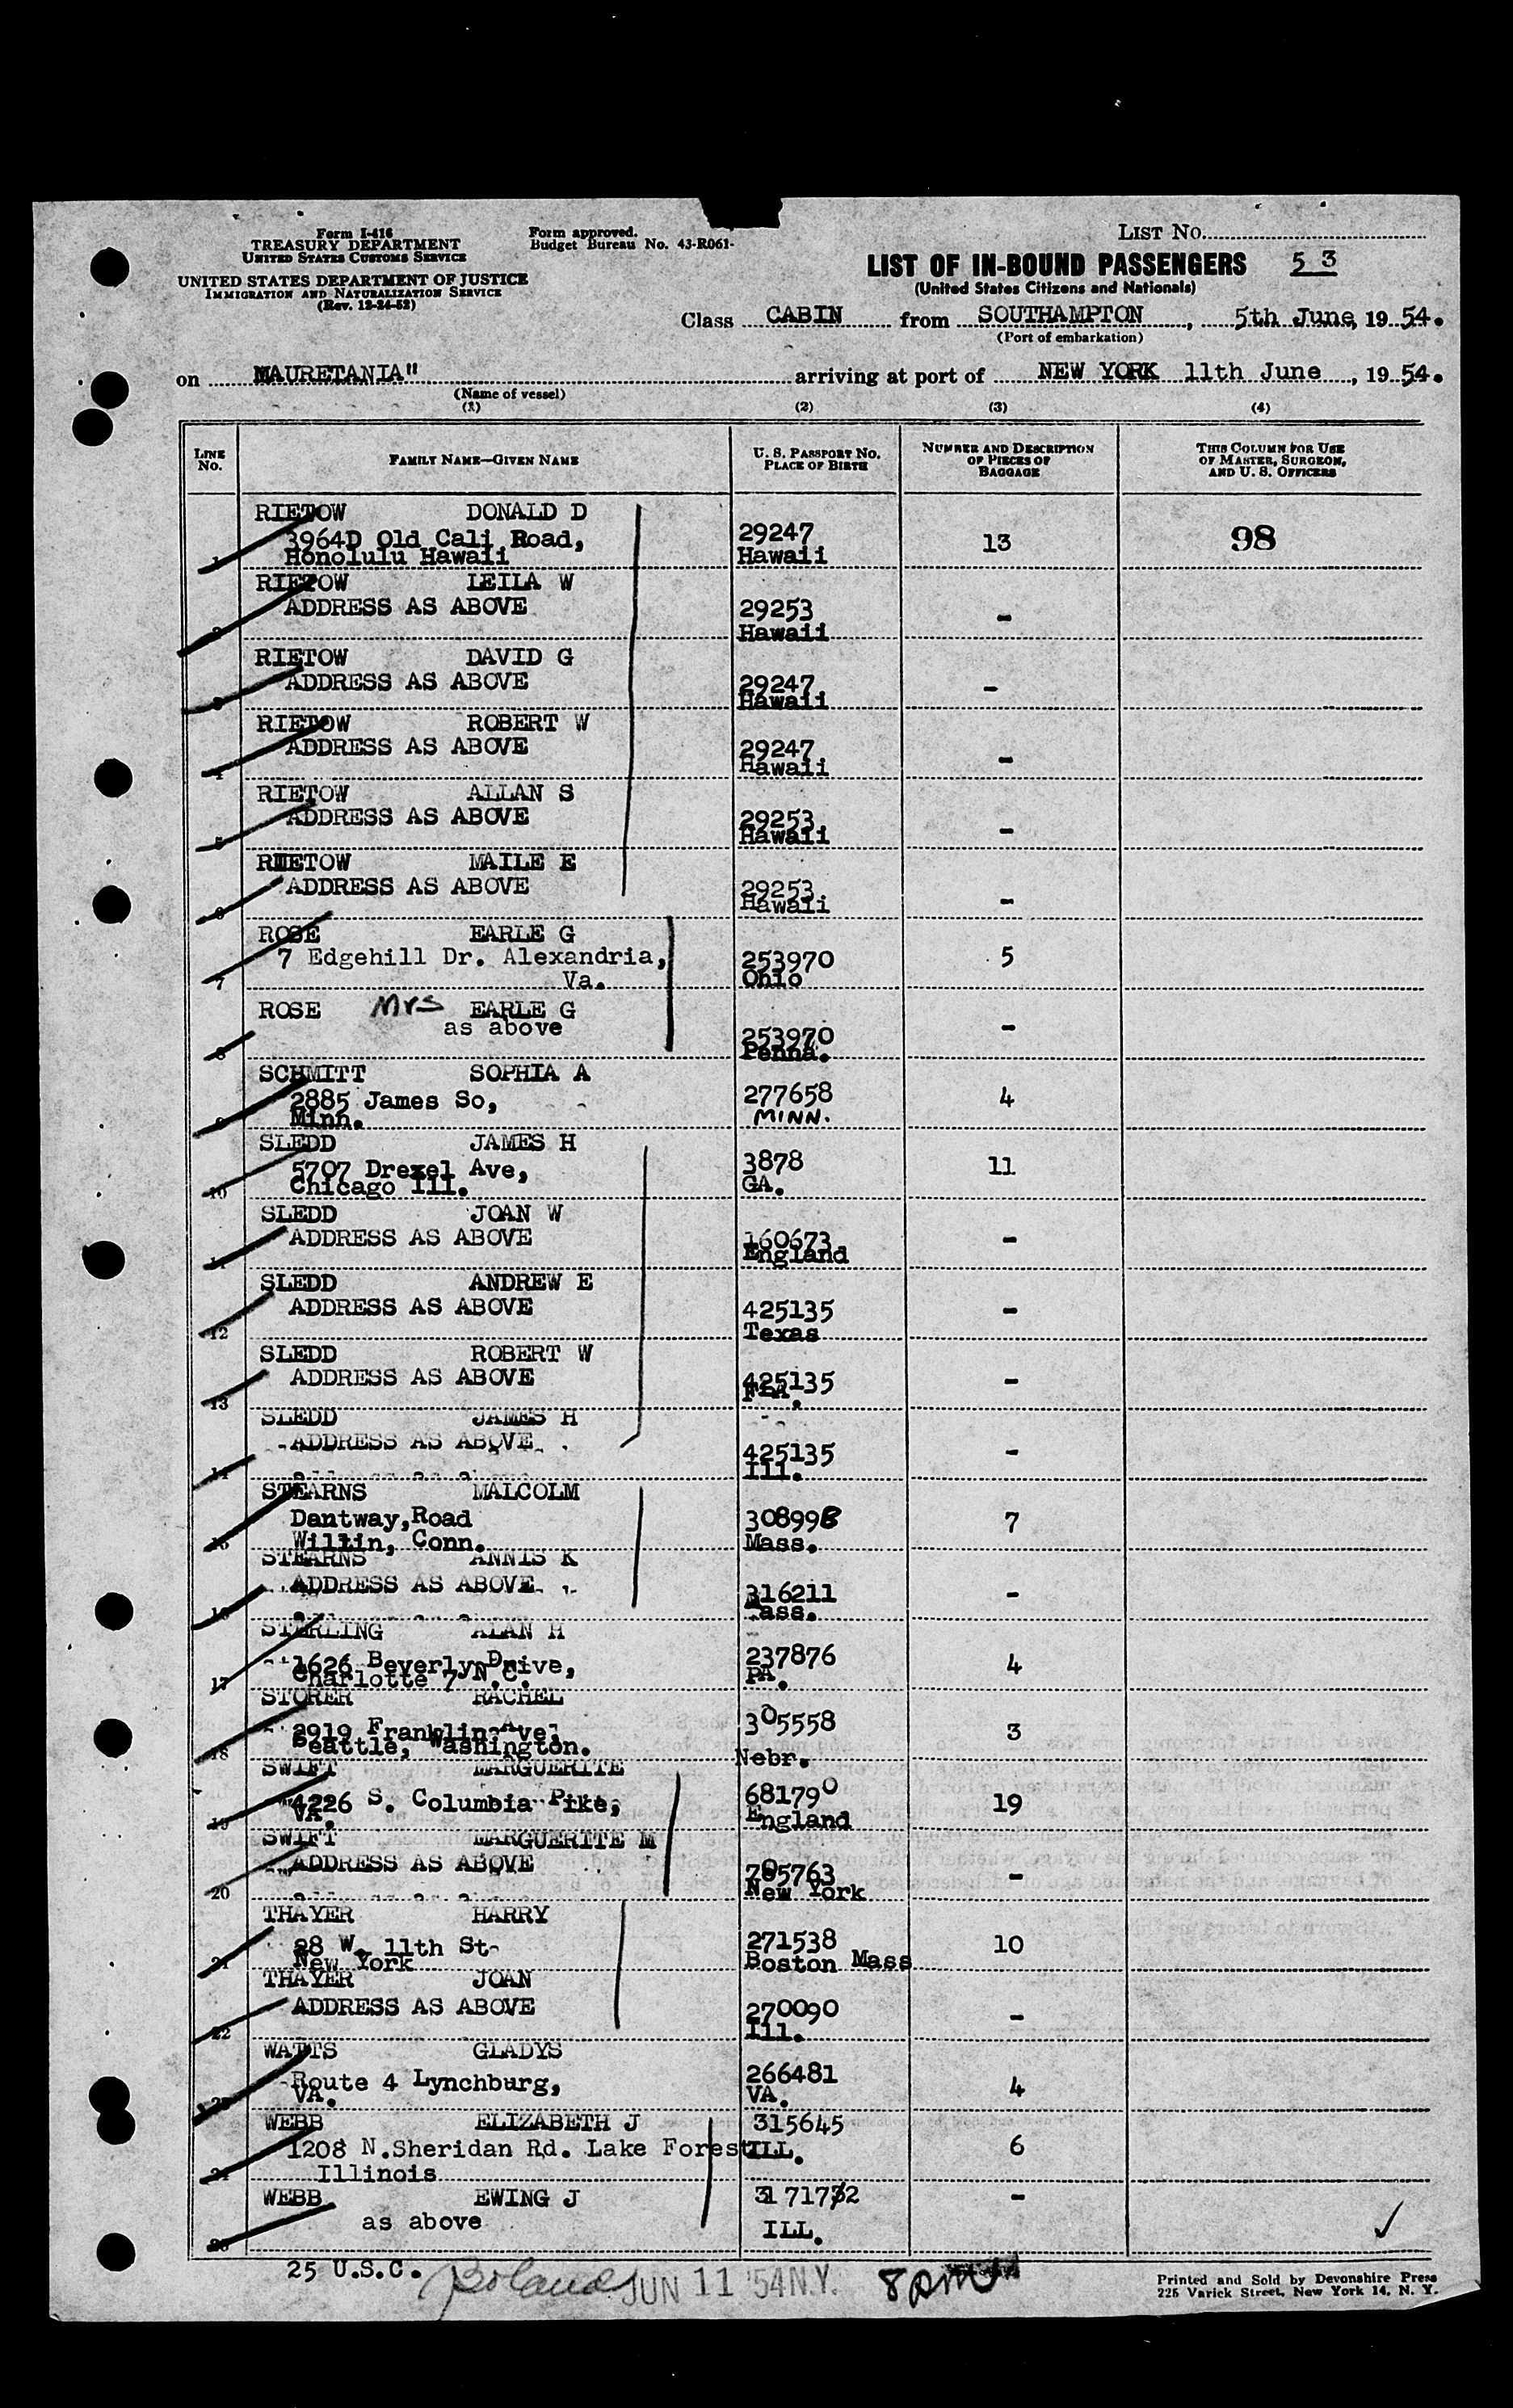 Form I-416
TREASURY DEPARTMENT
UNITED STATES CUSTOMS SERVICE
UNITED STATES DEPARTMENT OF JUSTICE
IMMIGRATION AND NATURALIZATION SERVICE
(Rev. 12-24-52)
Form approved.
Budget Bureau No. 43-R061-
LIST NO.
LIST OF IN-BOUND PASSENGERS 53
(United States Citizens and Nationals)
Class CABIN from SOUTHAMPTON, 5th June, 1954.
(Port of embarkation)
on MAURETANIA" arriving at port of NEW YORK 11th June, 1954.
(Name of vessel)
(1) (2) (3) (4)
LINE NO.
FAMILY NAME—GIVEN NAME
U. S. PASSPORT NO.
PLACE OF BIRTH
NUMBER AND DESCRIPTION
OF PIECES OF
BAGGAGE
THIS COLUMN FOR USE
OF MASTER, SURGEON,
AND U. S. OFFICERS
RIETOW DONALD D
3964D Old Cali Road, 29247 13 98
1 Honolulu Hawaii Hawaii
RIETOW LEILA W
ADDRESS AS ABOVE 29253 -
2 Hawaii
RIETOW DAVID G
ADDRESS AS ABOVE 29247 -
3 Hawaii
RIETOW ROBERT W
ADDRESS AS ABOVE 29247 -
4 Hawaii
RIETOW ALLAN S
ADDRESS AS ABOVE 29253 -
5 Hawaii
RIETOW MAILE E
ADDRESS AS ABOVE 29253 -
6 Hawaii
ROSE EARLE G
7 Edgehill Dr. Alexandria, 253970 5
7 Va. Ohio
ROSE Mrs EARLE G
as above 253970 -
8 Penna.
SCHMITT SOPHIA A
2885 James So, 277658 4
9 Minn. MINN.
SLEDD JAMES H
5707 Drexel Ave, 3878 11
10 Chicago Ill. GA.
SLEDD JOAN W
ADDRESS AS ABOVE 160673 -
11 England
SLEDD ANDREW E
ADDRESS AS ABOVE 425135 -
12 Texas
SLEDD ROBERT W
ADDRESS AS ABOVE 425135 -
13
SLEDD JAMES H
ADDRESS AS ABOVE 425135 -
14 Ill.
STEARNS MALCOLM
Dantway,Road 7
15 Conn. Mass.
STEARNS ANNIS K
ADDRESS AS ABOVE 316211 -
16 Mass.
STERLING ALAN H
1626 Beverly Drive, 237876 4
17 Charlotte 7 N.C. PA.
STORER RACHEL
2919 Franklin Ave, 305558 3
18 Seattle, Washington. Nebr.
SWIFT MARGUERITE
4226 S. Columbia Pike, 681790 19
19 VA. England
SWIFT MARGUERITE M
ADDRESS AS ABOVE 785763 -
20 New York
THAYER HARRY
28 W. 11th St- 271538 10
21 New York Boston Mass
THAYER JOAN
ADDRESS AS ABOVE 270090 -
22 Ill.
WATTS GLADYS
Route 4 Lynchburg, 266481 4
23 VA. VA.
WEBB ELIZABETH J 315645
1208 N.Sheridan Rd. Lake Forest ILL. 6
24 Illinois
WEBB EWING J -
as above ILL.
25
25 U.S.C. JUN 11 '54 N.Y. 8pm
Printed and Sold by Devonshire Press
225 Varick Street, New York 14, N. Y.